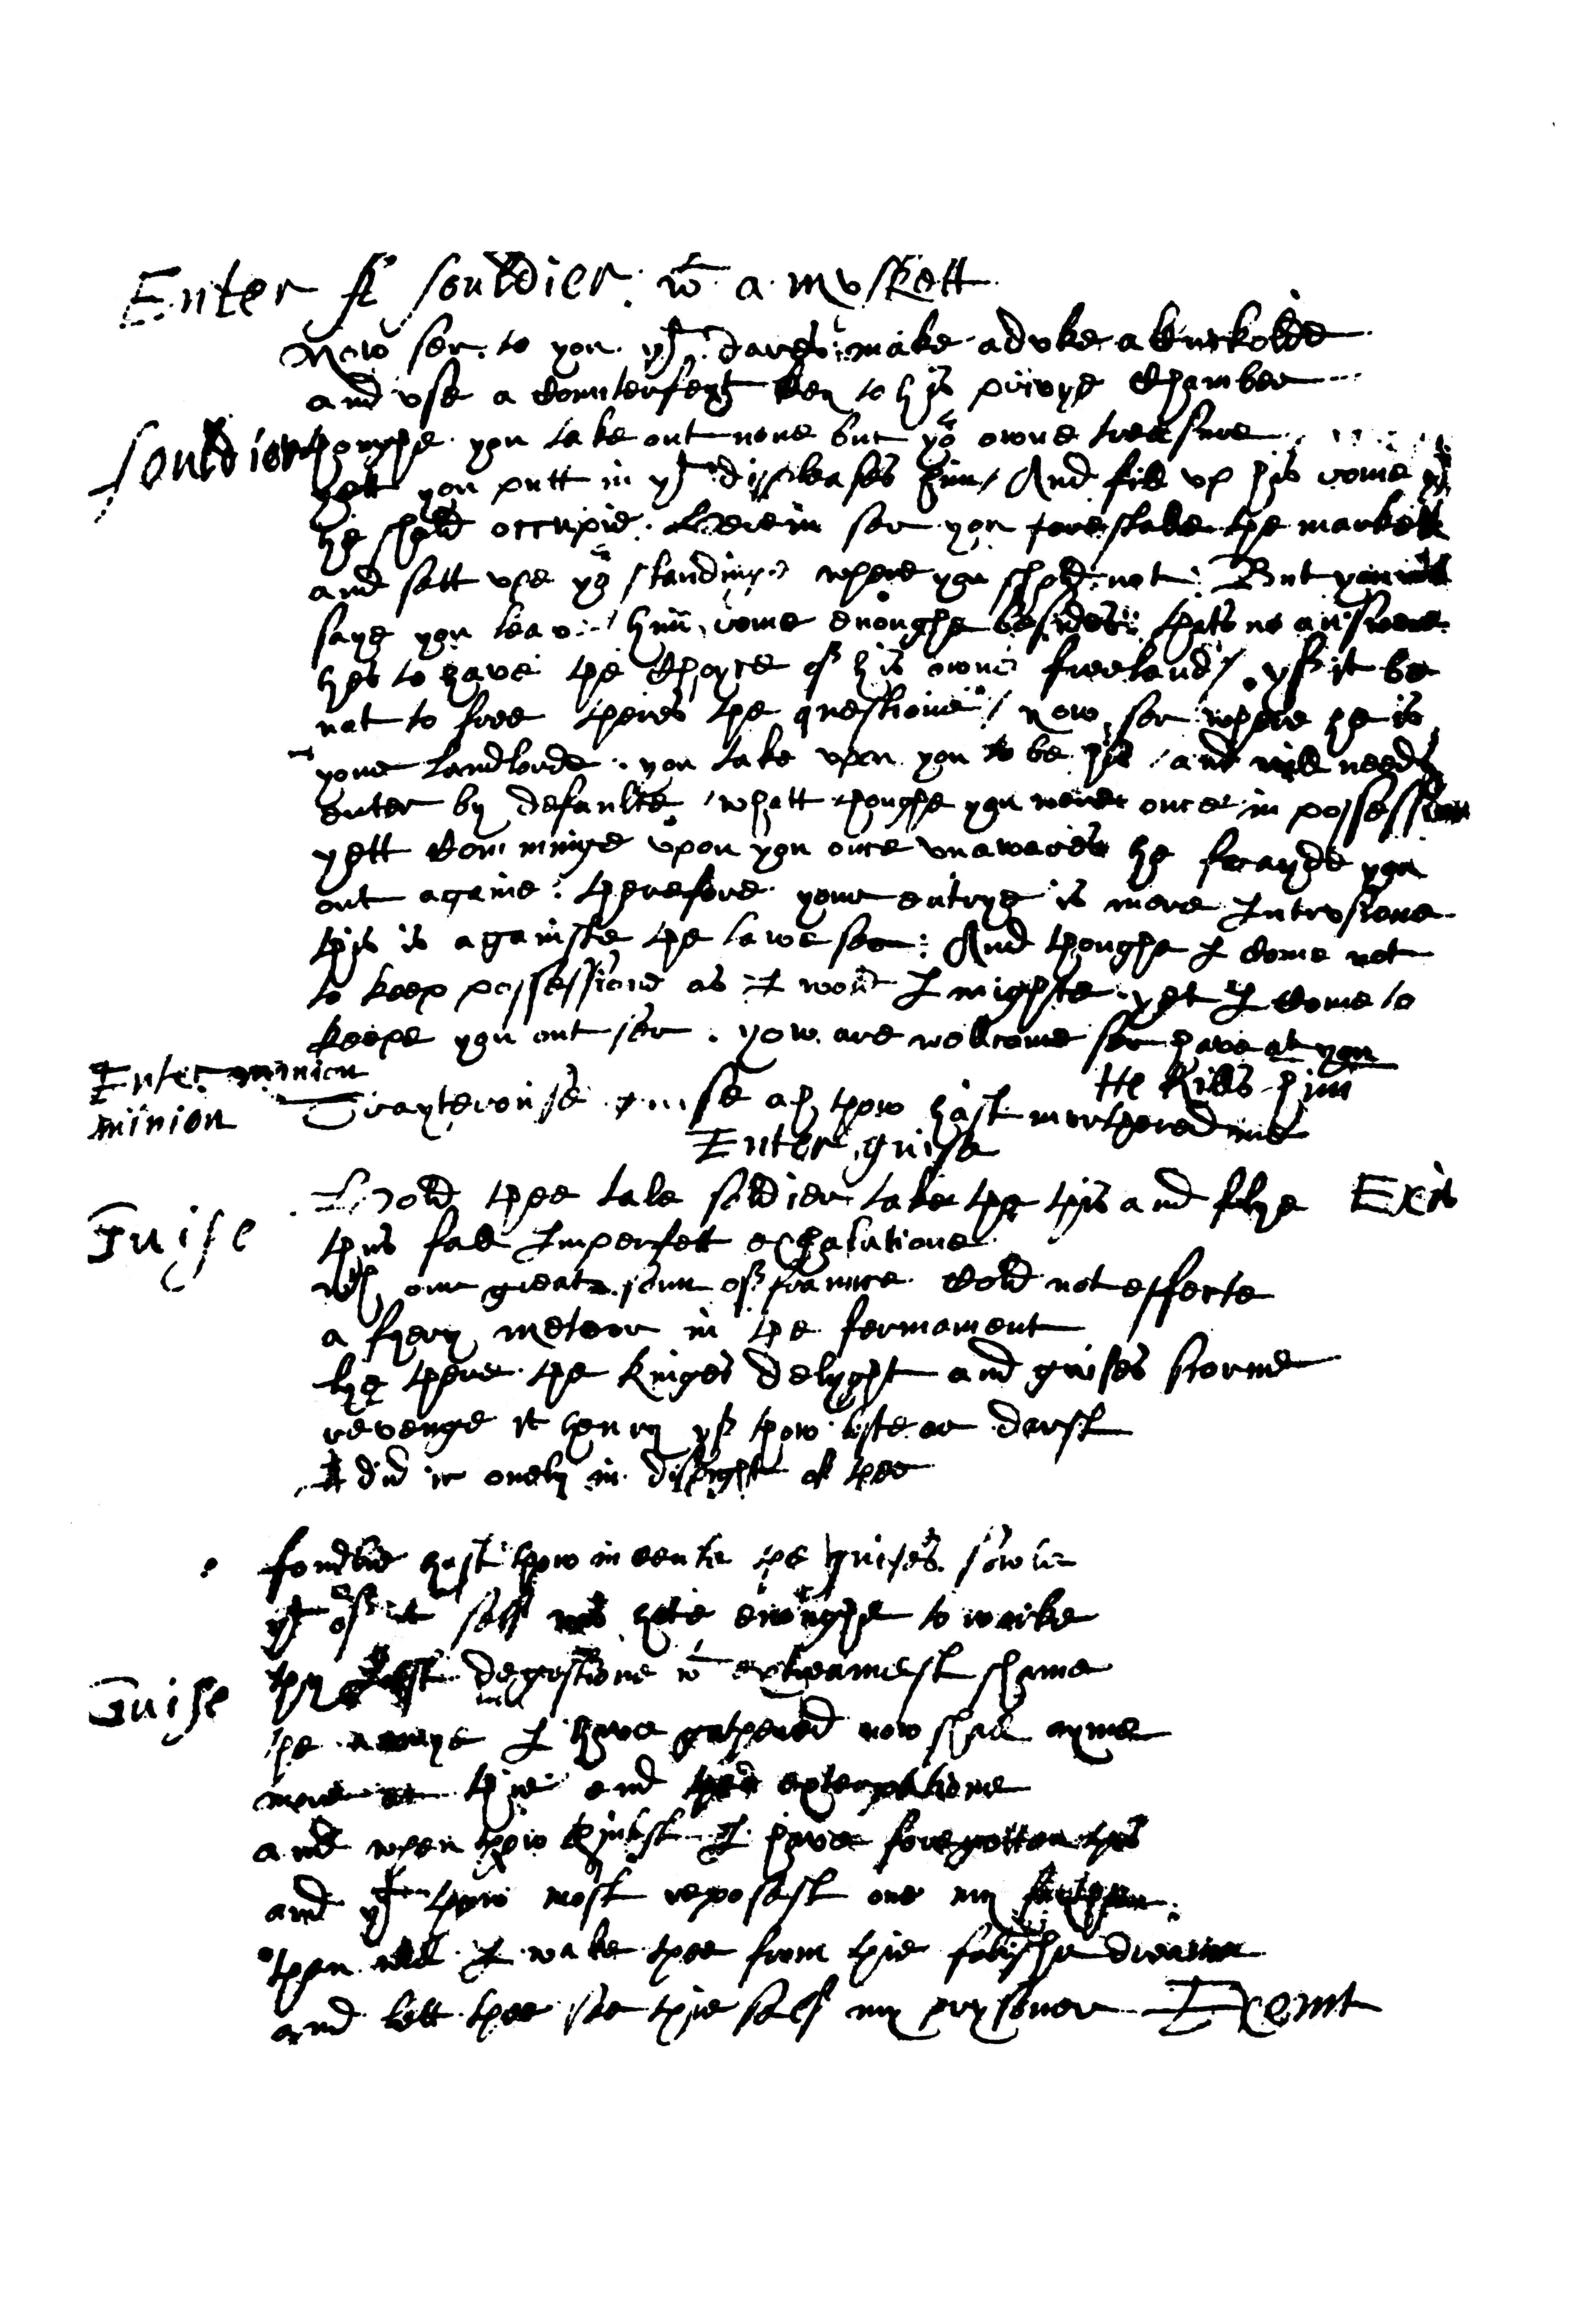 Enter A souldier. wt a muskett
Now ser. to you yt dares make a duke a cuckolde
and vse a counterfeyt key to his privye chamber
souldier thoughe you take out none but yor owne treasure
yett you putt in yt displeases him / And fill vp his rome yt
he shold occupie. Herein ser you forestalle the markett
and sett vpe yor standinge where you shold not: But you will
saye you leave him rome enoughe besides: thats no answere
hes to have the choyce of his owne freeland / yf it be
not to free theres the questione / now ser where he is
your landlorde. you take vpon you to be his / and will needs
enter by defaulte / whatt thoughe you were once in possession
yett comminge vpon you once vnawares he frayde you
out againe: therefore your entrye is mere Intrusione
this is againste the lawe ser: And thoughe I come not
to keep possessione as I wold I mighte yet I come to
keepe you out ser. yow are wellcome ser have at you
Enter minion He Kills him
minion Trayterouse guise ah thow hast murthered me
Enter guise
Guise Hold thee tale soldier take the this and flye Exit
thus fall Imperfett exhalatione
wch our great sonn of fraunce cold not effecte
a fyery meteor in the fermament
lye there the Kinges delyght and guises scorne
revenge it henry yf thow liste or darst
I did it onely in dispight of thee
fondlie hast thow in censte the guises sowle
yt of it self was hote enoughe to worke
thy Iust degestione wt extreamest shame
Guise the armye I have gathered now shall ayme
more at thie end then exterpatione
and when thow thinkst I have foregotten this
and yt thow most reposest one my faythe
then will I wake thee from thie folishe dreame
and lett thee see thie self my prysoner Exeunt